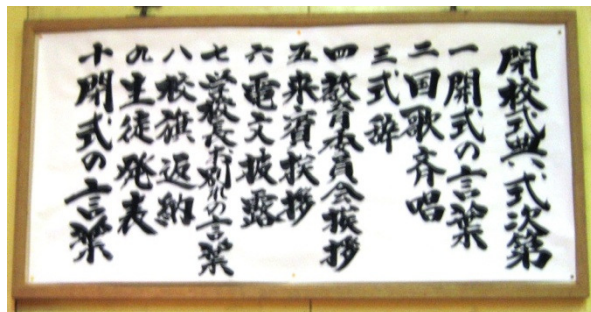 閉校式典式次第
一開式の言葉
二国歌斉唱
三式辞
四教育委員会挨拶
五来賓挨拶
六電文披露
七学校長お別れの言葉
八校旗返納
九生徒発表
十閉式の言葉